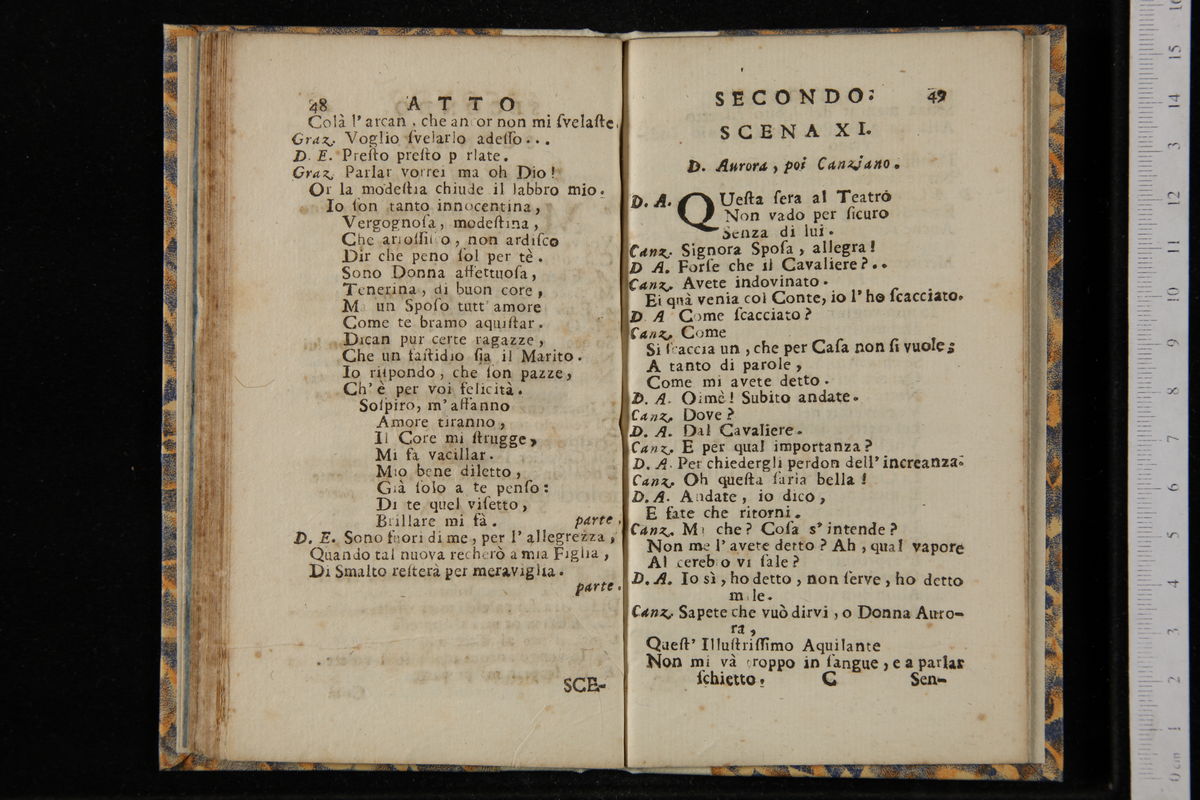 48 ATTO
Colà l'arcan, che ancor non mi ſvelaſte.
Graz. Voglio ſvelarlo adeſſo...
D. E. Preſto preſto p rlate.
Graz. Parlar vorrei ma oh Dio!
Or la modeſtia chiude il labbro mio.
Io ſon tanto innocentina,
Vergognoſa, modeſtina,
Che, non ardiſco
Dir che peno ſol per tè.
Sono Donna affettuoſa,
Tenerina, di buon core,
Ma un Spoſo tutt'amore
Come te bramo aquiſtar.
Dican pur certe ragazze,
Che un faſtidio ſia il Marito.
Io riſpondo, che ſon pazze,
Ch'è per voi felicità.
Soſpiro, m'affanno
Amore tiranno,
Il Core mi ſtrugge,
Mi fà vacillar.
Mio bene diletto,
Già ſolo a te penſo:
Di te quel viſetto,
Brillare mi fà. parte.
D. E. Sono fuori di me, per l'allegrezza,
Quando tal nuova recherò a mia Figlia,
Di Smalto reſterà per meraviglia.
parte.
SCE-
SECONDO. 49
SCENA XI.
D. Aurora, poi Canziano.
D. A. QUeſta ſera al Teatro
Non vado per ſicuro
Senza di lui.
Canz. Signora Spoſa, allegra!
D A. Forſe che il Cavaliere?..
Canz. Avete indovinato.
Ei quà venia col Conte, io l'ho ſcacciato.
D. A Come ſcacciato?
Canz. Come
Si ſcaccia un, che per Caſa non ſi vuole;
A tanto di parole,
Come mi avete detto.
D. A. Oimè! Subito andate.
Canz. Dove?
D. A. Dal Cavaliere.
Canz. E per qual importanza?
D. A. Per chiedergli perdon dell'increanza.
Canz. Oh queſta ſaria bella!
D. A. Andate, io dico,
E fate che ritorni.
Canz. Ma che? Coſa s'intende?
Non me l'avete detto? Ah, qual vapore
Al cerebro vi ſale?
D. A. Io sì, ho detto, non ſerve, ho detto
male.
Canz. Sapete che vuò dirvi, o Donna Auro-
ra,
Queſt'Illuſtriſſimo Aquilante
Non mi và troppo in ſangue, e a parlar
ſchietto. C Sen-